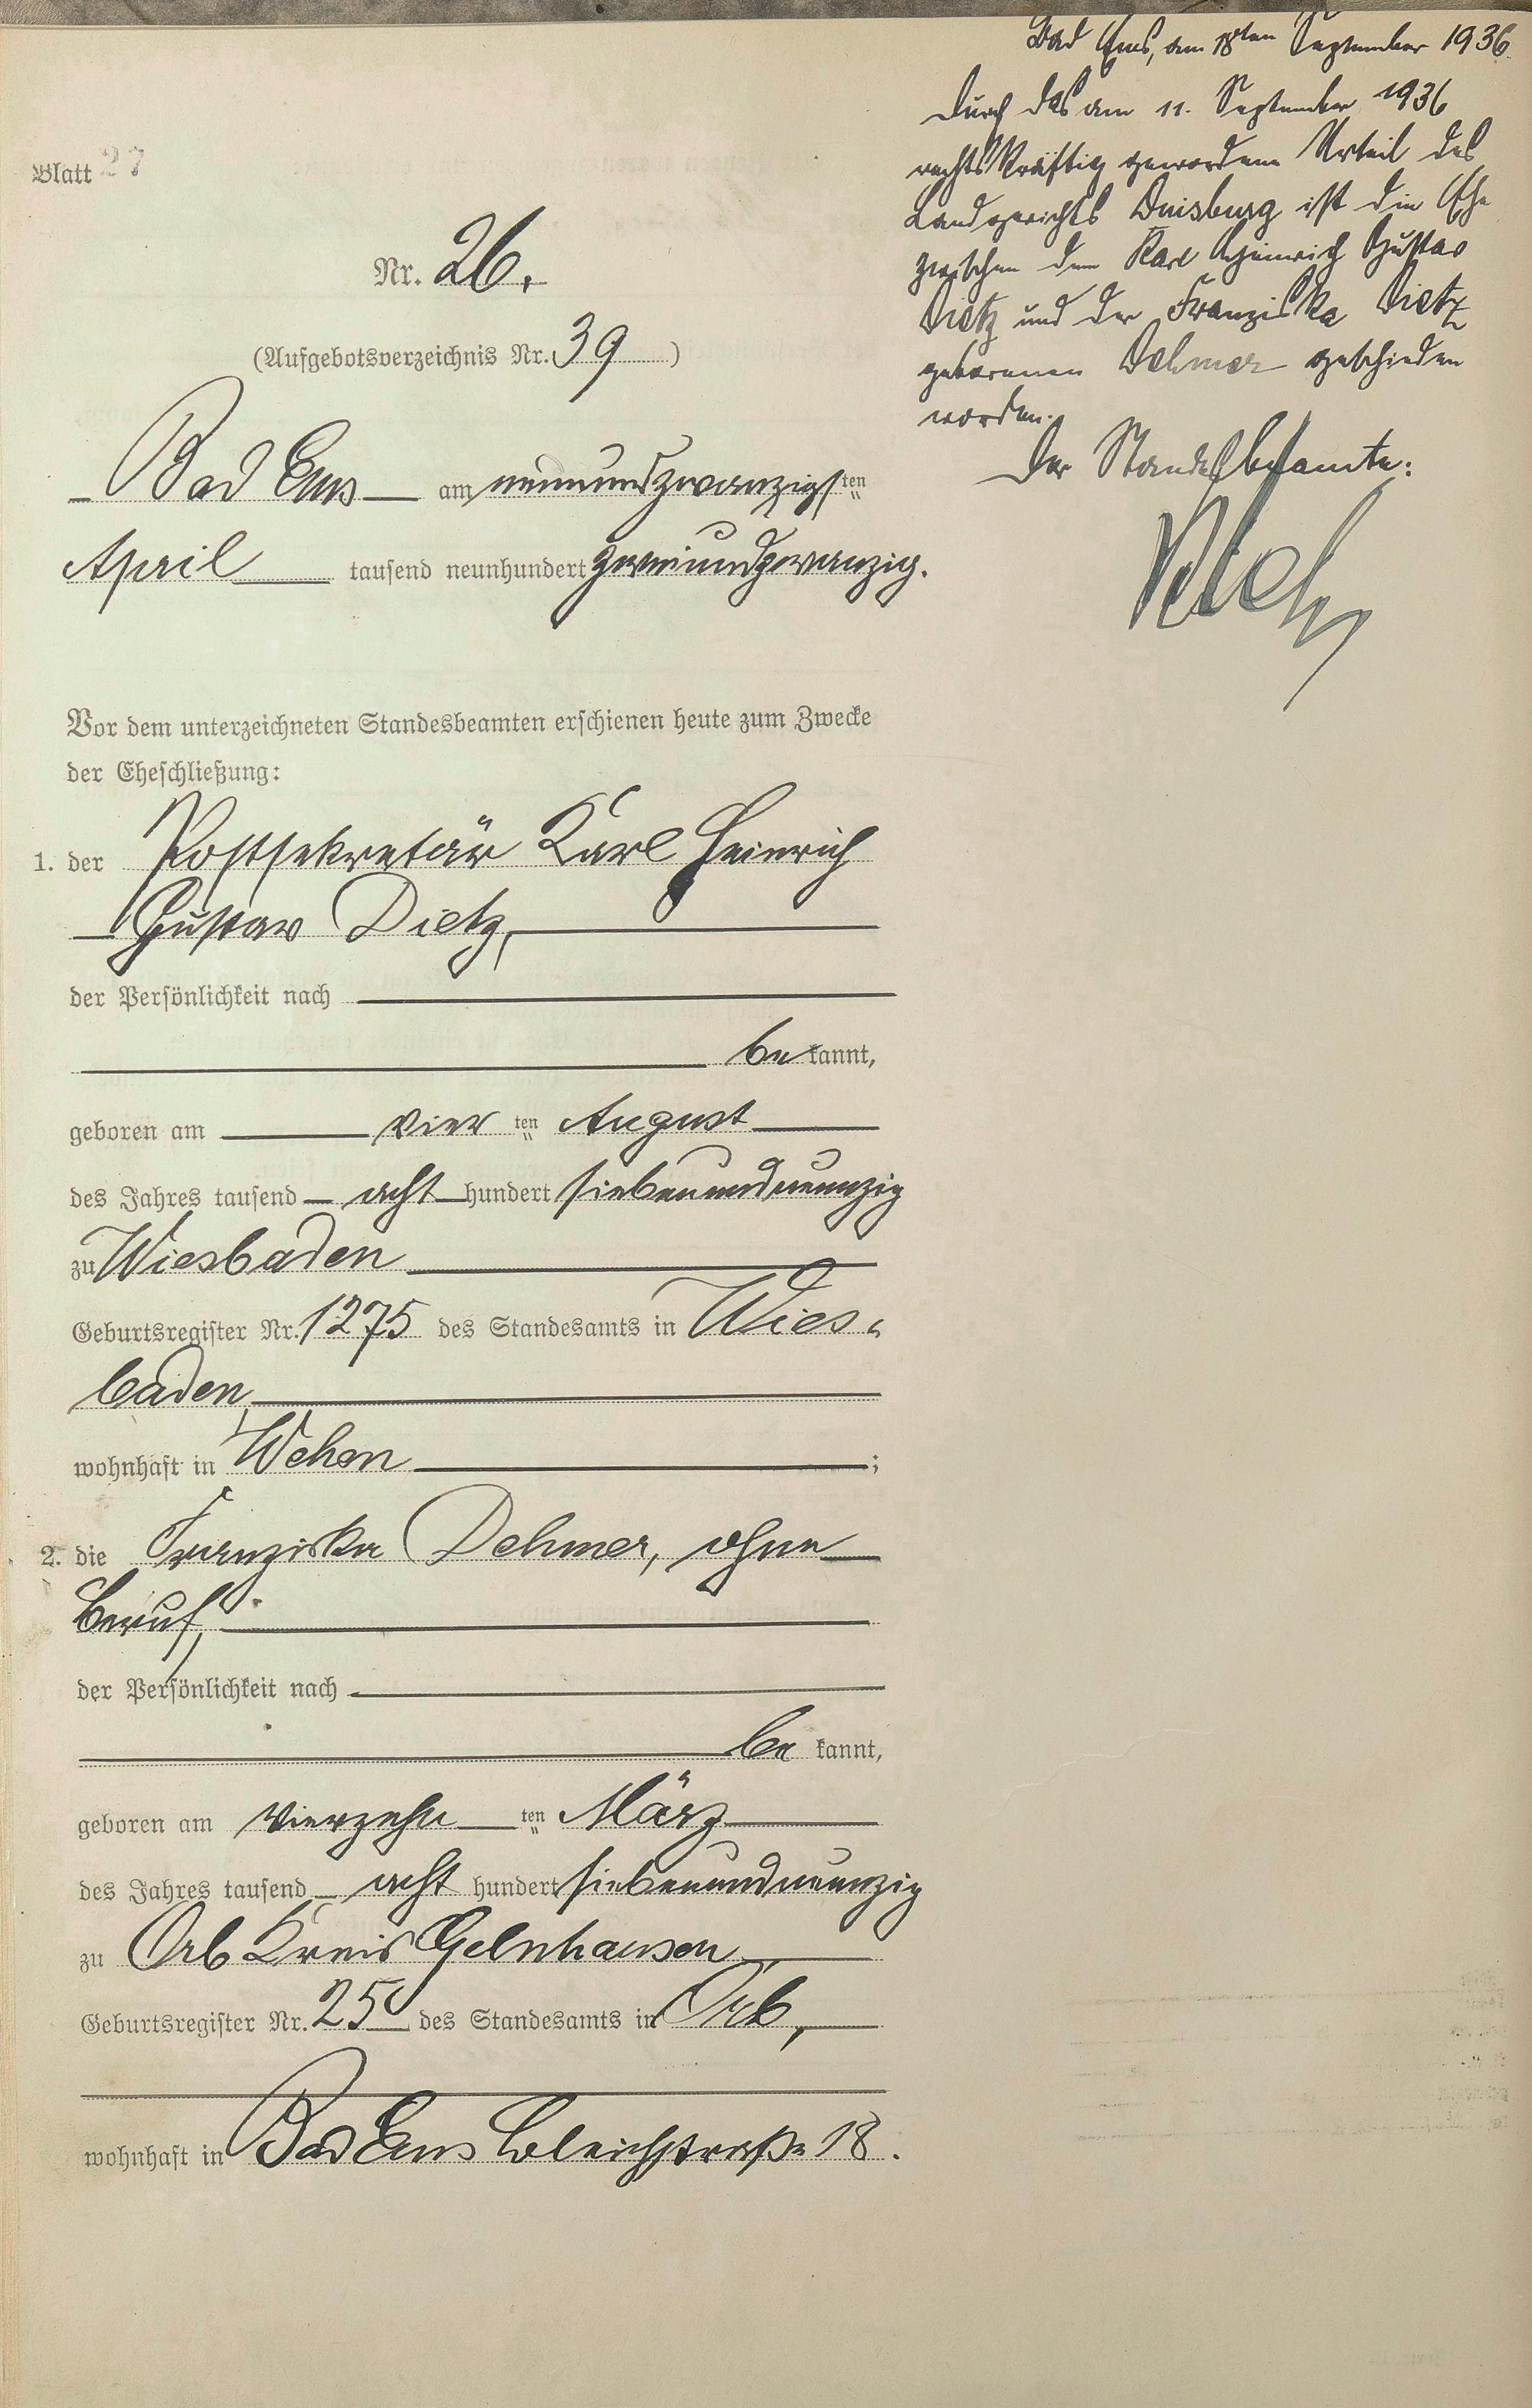 Blatt 27
Nr. 26.
(Aufgebotsverzeichnis Nr. 39)
Bad Ems am neunundzwanzigsten
April tausend neunhundert zweiundzwanzig.
Vor dem unterzeichneten Standesbeamten erschienen heute zum Zwecke
der Eheschließung:
1. der Postsekretär Karl Heinrich
Gustav Dietz,
der Persönlichkeit nach
bekannt,
geboren am vierten August
des Jahres tausend acht hundert siebenundneunzig
zu Wiesbaden
Geburtsregister Nr. 1275 des Standesamts in Wies-
baden,
wohnhaft in Wehen;
2. die Franziska Dehmer, ohne
Beruf,
der Persönlichkeit nach
bekannt,
geboren am vierzehnten März
des Jahres tausend acht hundert siebenundneunzig
zu Orb Kreis Gelnhausen,
Geburtsregister Nr. 25 des Standesamts in Orb,
wohnhaft in Bad Ems Bleichstraße 18.
Bad Ems, am 18ten September 1936.
Durch das am 11. September 1936
rechtskräftig gewordene Urteil des
Landgerichts Duisburg ist die Ehe
zwischen dem Karl Heinrich Gustav
Dietz und der Franziska Dietz
geborenen Dehmer geschieden
worden.
Der Standesbeamte: